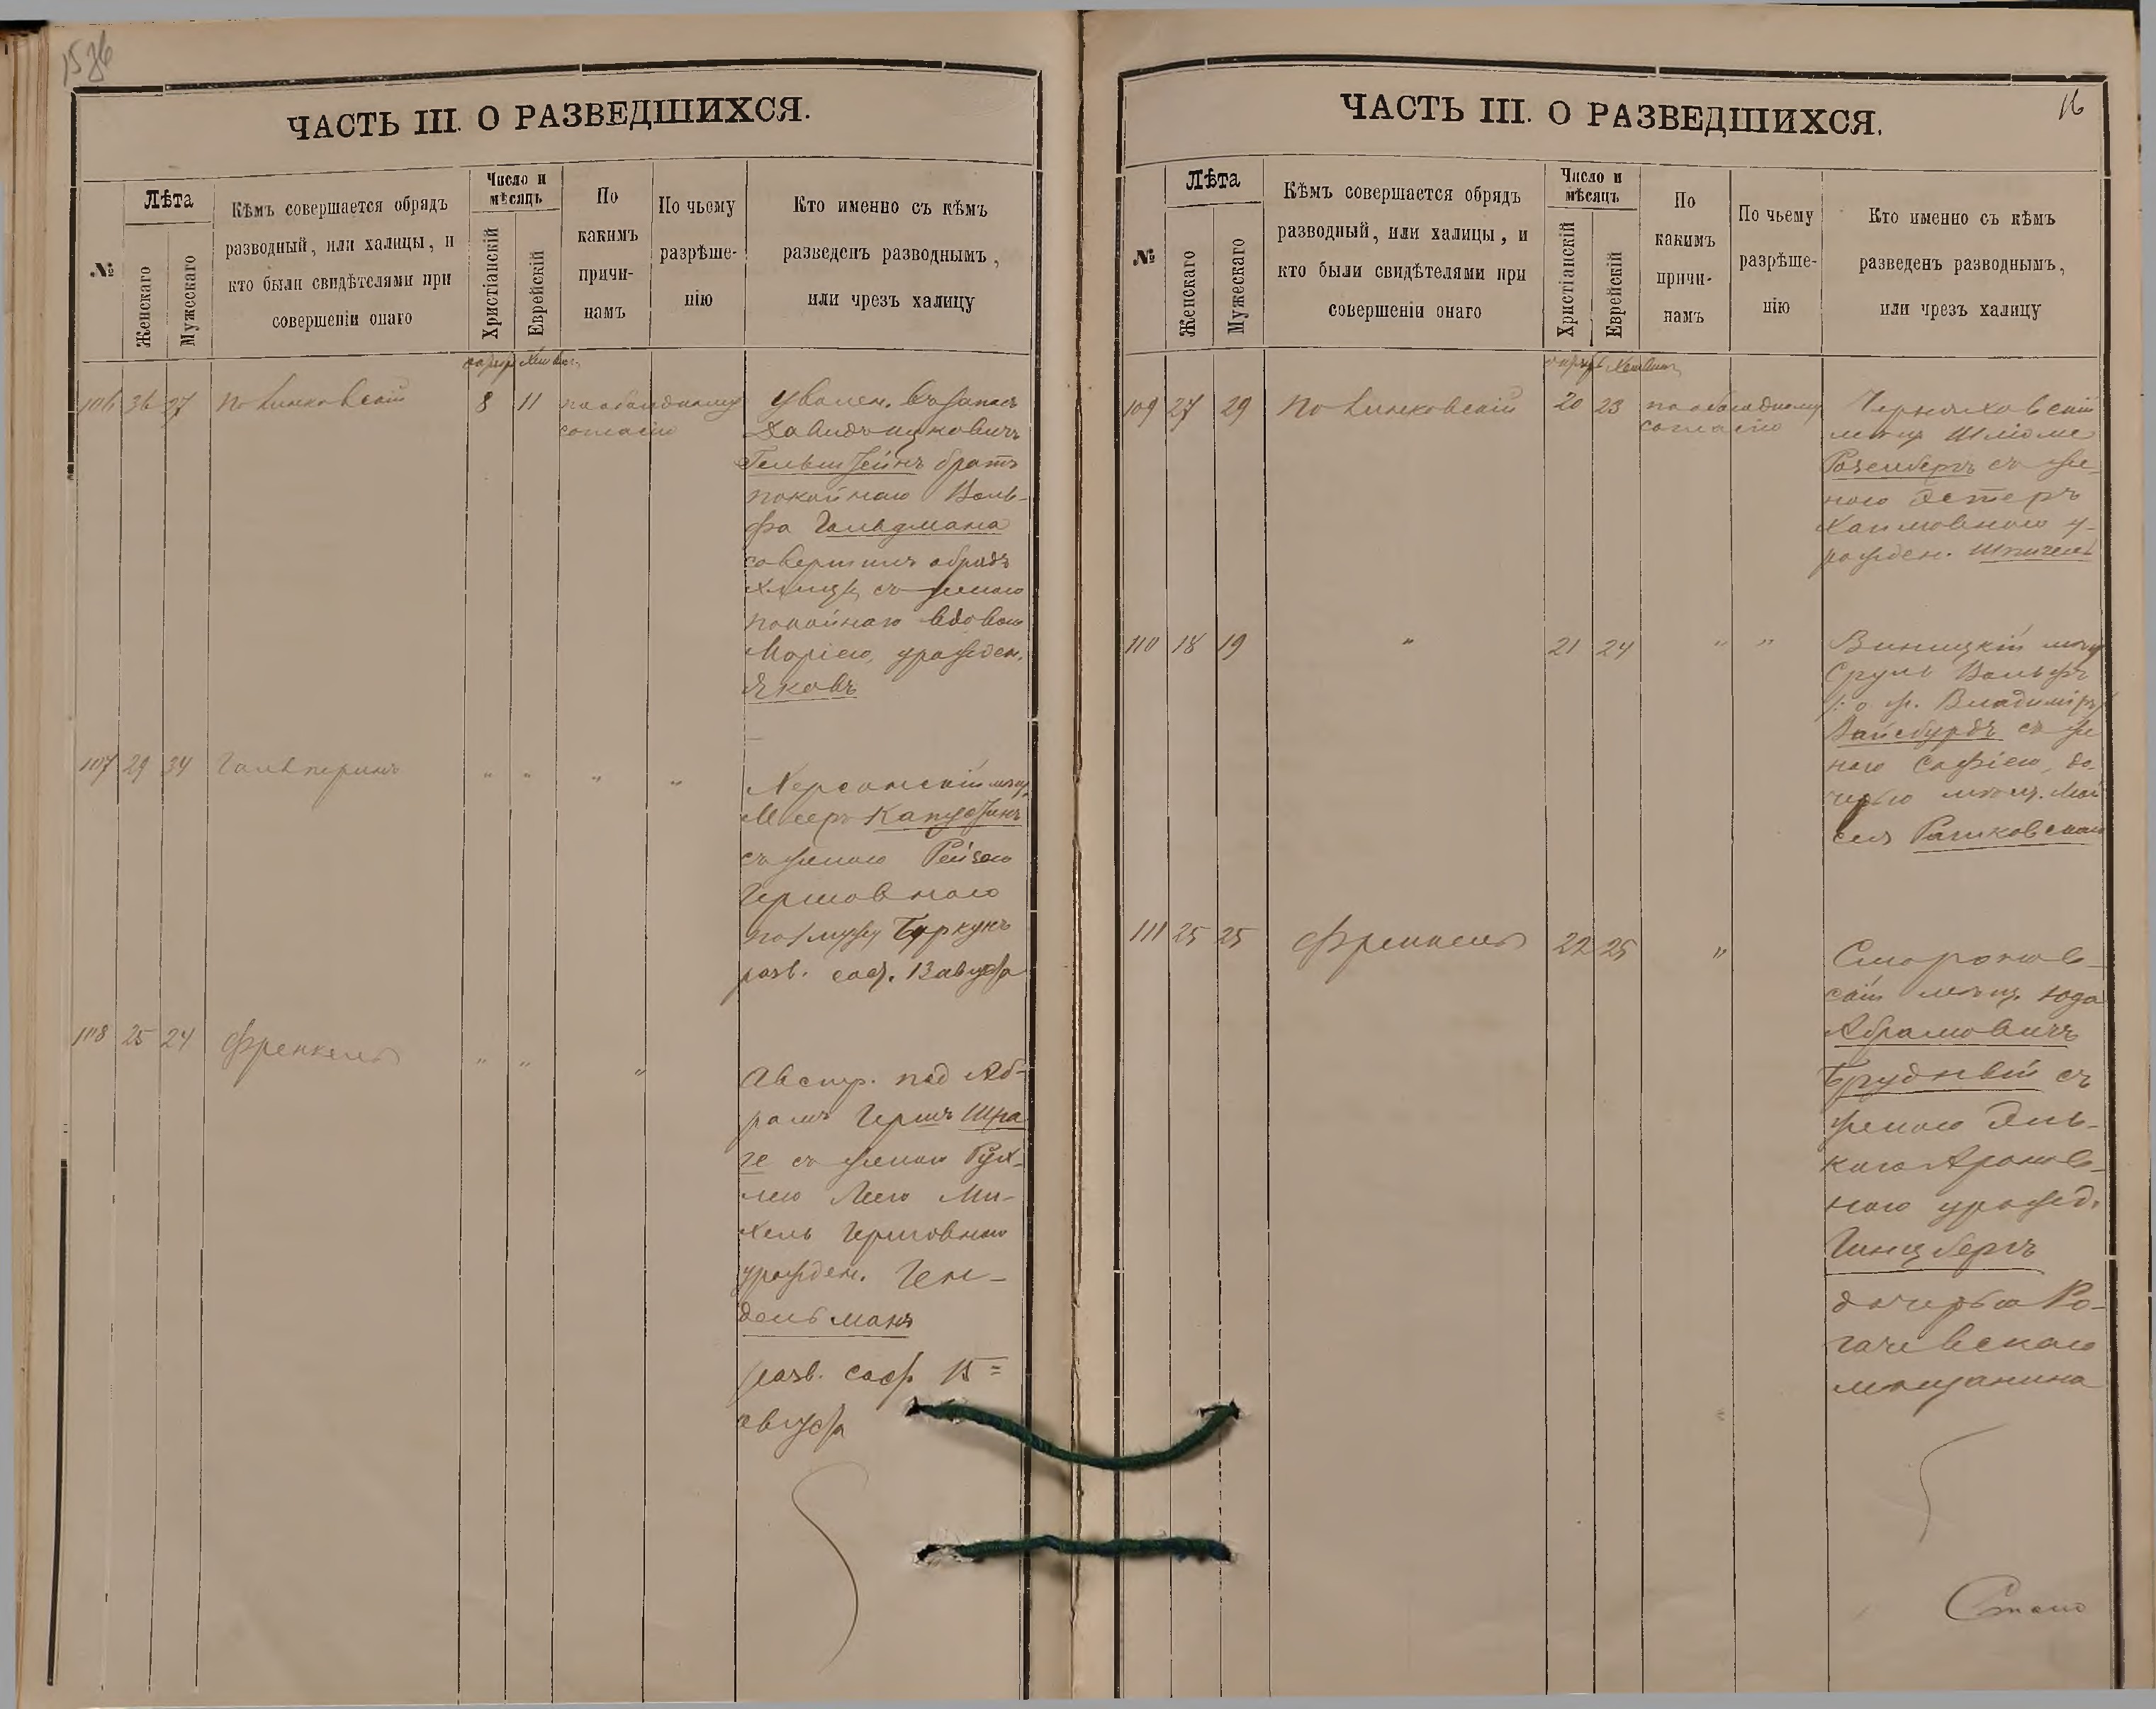 ЧАСТЬ III. О РАЗВЕДШИХСЯ.
№
Лѣта
Женскаго
Мужескаго
Кѣмъ совершается обрядъ
разводный, или халицы, и
кто были свидѣтелями при
совершеніи онаго
Число и
мѣсяцъ
Христіанскій
Еврейскій
По
какимъ
причи-
намъ
По чьему
разрѣше-
нію
Кто именно съ кѣмъ
разведенъ разводнымъ,
или чрезъ халицу
106 36 27
8 11
по обоюдному
согласію
Уволен. въ запасъ
Давидъ Ицковичъ
Гельштейнъ братъ
покойнаго Воль-
фа Гольдмана
совершилъ обрядъ
халицы съ женою
покойнаго вдовою
Маріею, урожден.
Яковъ
107 29 34 Гальперинъ " " " "
Херсонскій мѣщ.
Мееръ Капустинъ
съ женою Рейзею
Гершовною
по мужу Буркунъ
разв. сост. 13 августа
108 25 24 Френкель " " "
Австр. под Аб-
рамъ Гершъ Шра
ге съ женою Рух-
лею Леею Ми-
хель Гершовною
урожден. Ген-
дельманъ
разв. сост 15 =
августа
ЧАСТЬ III. О РАЗВЕДШИХСЯ.
16
№
Лѣта
Женскаго
Мужескаго
Кѣмъ совершается обрядъ
разводный, или халицы, и
кто были свидѣтелями при
совершеніи онаго
Число и
мѣсяцъ
Христіанскій
Еврейскій
По
какимъ
причи-
намъ
По чьему
разрѣше-
нію
Кто именно съ кѣмъ
разведенъ разводнымъ,
или чрезъ халицу
109 27 29
20 23
по обоюдному
согласію
Черняховскій
мѣщ Шлiоме
Розенбергъ съ же-
ною Эстеръ
Хаимовною у-
рожден. Шпигель
110 18 19 " 21 24 " "
Виницкій мѣщ
Сруль Вольфъ
/: о ж. Владиміръ/
Вайсбурдъ съ же
ною Софіею, до-
черью мѣщ. Мой
сея Рашковскаго
111 25 25 Френкель 22 25 "
скій мѣщ. Юда
Абрамовичъ
Брудный съ
женою Эль-
кою Аронов-
ною урожд.
Гинцбергъ
дочерью Ро-
гачевскаго
мѣщанина